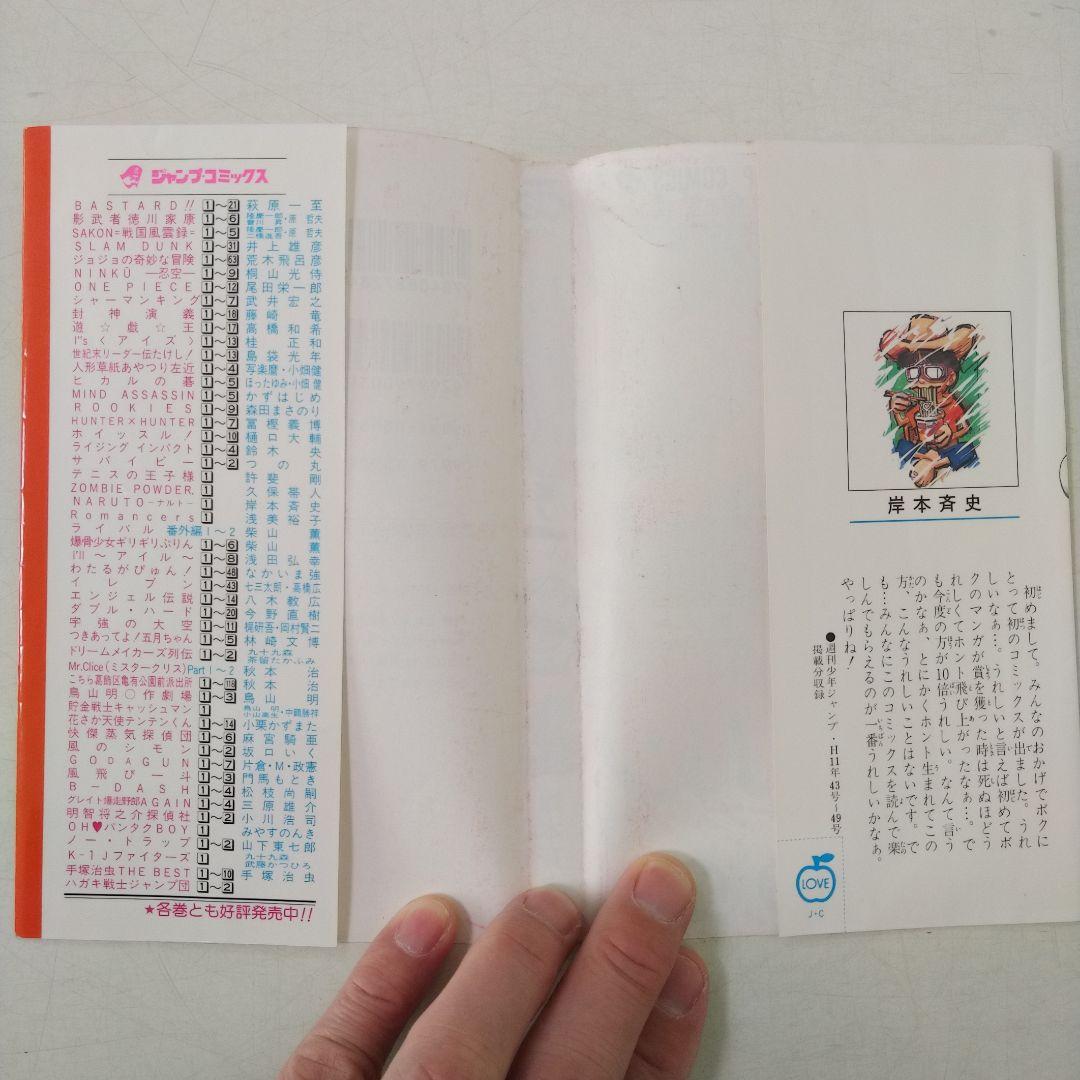 ジャンプ・コミックス
BASTARD!! 1～21 萩原一至
影武者徳川家康 1～6 隆慶一郎・原哲夫
SAKON=戦国風雲録= 1～5 隆慶一郎・原哲夫
SLAM DUNK 1～31 井上雄彦
ジョジョの奇妙な冒険 1～63 荒木飛呂彦
NINKŪ ―忍空― 1～9 桐山光侍
ONE PIECE 1～12 尾田栄一郎
シャーマンキング 1～7 武井宏之
封神演義 1～18 藤崎竜
遊☆戯☆王 1～17 高橋和希
I"s〈アイズ〉 1～13 桂正和
世紀末リーダー伝たけし! 1～13 島袋光年
人形草紙あやつり左近 1～4 写楽麿・小畑健
ヒカルの碁 1～5 ほったゆみ・小畑健
MIND ASSASSIN 1～5 かずはじめ
ROOKIES 1～9 森田まさのり
HUNTER×HUNTER 1～7 冨樫義博
ホイッスル! 1～10 樋口大輔
ライジング インパクト 1～4 鈴木央
サバイビー 1～2 つの丸
テニスの王子様 1 許斐剛
ZOMBIE POWDER. 1 久保帯人
NARUTO―ナルト― 1 岸本斉史
Romancers 1 浅美裕子
ライバル 番外編1～2 柴山薫
爆骨少女ギリギリぷりん 1～6 柴山薫
I'll～アイル～ 1～8 浅田弘幸
わたるがぴゅん! 1～48 なかいま強
イレブン 1～43 七三太朗・高橋広
エンジェル伝説 1～14 八木教広
ダブル・ハード 1～20 今野直樹
字強の大空 1～11 梶研吾・岡村賢二
つきあってよ!五月ちゃん 1～5 林崎文博
ドリームメイカーズ列伝 1～2 九十九森 茶留たかふみ
Mr.Clice(ミスタークリス) Part1～2 秋本治
こちら葛飾区亀有公園前派出所 1～118 秋本治
鳥山明○作劇場 1～3 鳥山明
貯金戦士キャッシュマン 1 鳥山明 小山高生・中鶴勝祥
花さか天使テンテンくん 1～14 小栗かずまた
快傑蒸気探偵団 1～6 麻宮騎亜
風のシモン 1～2 坂口いく
GODAGUN 1～7 片倉・M・政憲
風飛び一斗 1～3 門馬もとき
B-DASH 1～4 松枝尚嗣
グレイト爆走野郎AGAIN 1～4 三原雄介
明智将之介探偵社 1～2 小川浩司
OH♥バンタクBOY 1 みやすのんき
ノー・トラップ 1～2 山下東七郎
K-1 Jファイターズ 1 九十九森 武藤かつひろ
手塚治虫THE BEST 1～10 手塚治虫
ハガキ戦士ジャンプ団 1～2
★各巻とも好評発売中!!
岸本斉史
初めまして。みんなのおかげでボクに
とって初のコミックスが出ました。うれ
しいなぁ…。うれしいと言えば初めてボ
クのマンガが賞を獲った時は死ぬほどう
れしくてホント飛び上がったなぁ…。で
も今度の方が10倍うれしい。なんて言う
のかなぁ、とにかくホント生まれてこの
方、こんなうれしいことはないです。で
も…みんなにこのコミックスを読んで楽
しんでもらえるのが一番うれしいかなぁ。
やっぱりね!
●週刊少年ジャンプ・H11年43号～49号
掲載分収録
LOVE
J・C